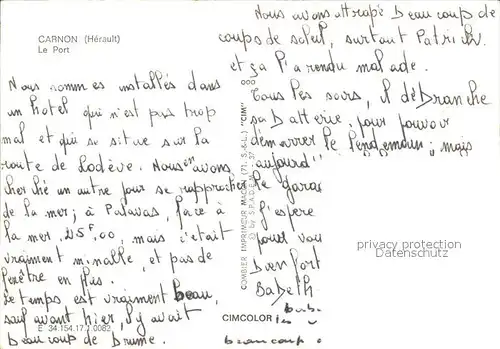 CARNON (Hérault)
Le Port
Nous sommes installés dans
un hotel qui n'est pas trop
mal et qui se situe sur la
route de Lodève. Nous en avons
cherché un autre pour se rapprocher
de la mer ; à Palavas, face à
la mer, 25F,00, mais c'était
vraiment minable, et pas de
fenêtre en plus.
Le temps est vraiment beau,
sauf avant hier, il y avait
beaucoup de brume.
E 34.154.17.1.0082
COMBIER IMPRIMEUR MACON (71. S.-&-L.) "CIM"
© by S.P.A.D.E.M.
CIMCOLOR
Nous avons attrapé beaucoup de
coups de soleil, surtout Patrick
et ça l'a rendu malade.
Tous les soirs, il débranche
sa batterie, pour pouvoir
démarrer le lendemain ; mais
aujourd'
le garag
J'espère
pour vou
Bien fort
Babeth
beaucoup
privacy protection
Datenschutz